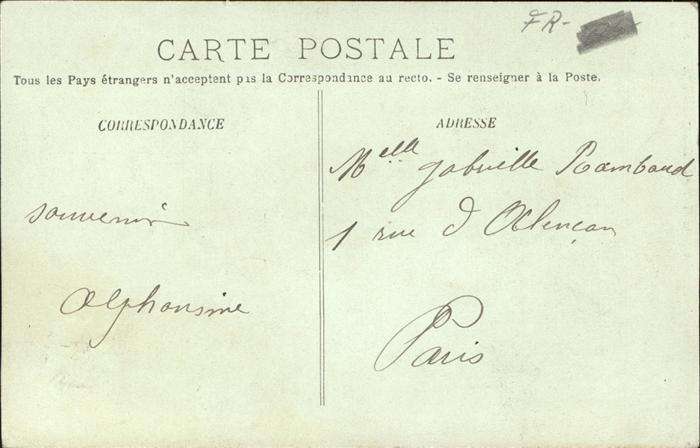 FR-
CARTE POSTALE
Tous les Pays étrangers n'acceptent pas la Correspondance au recto. - Se renseigner à la Poste.
CORRESPONDANCE
souvenir
Alphonsine
ADRESSE
Melle Gabrielle Rambaud
1 rue d'Alençon
Paris